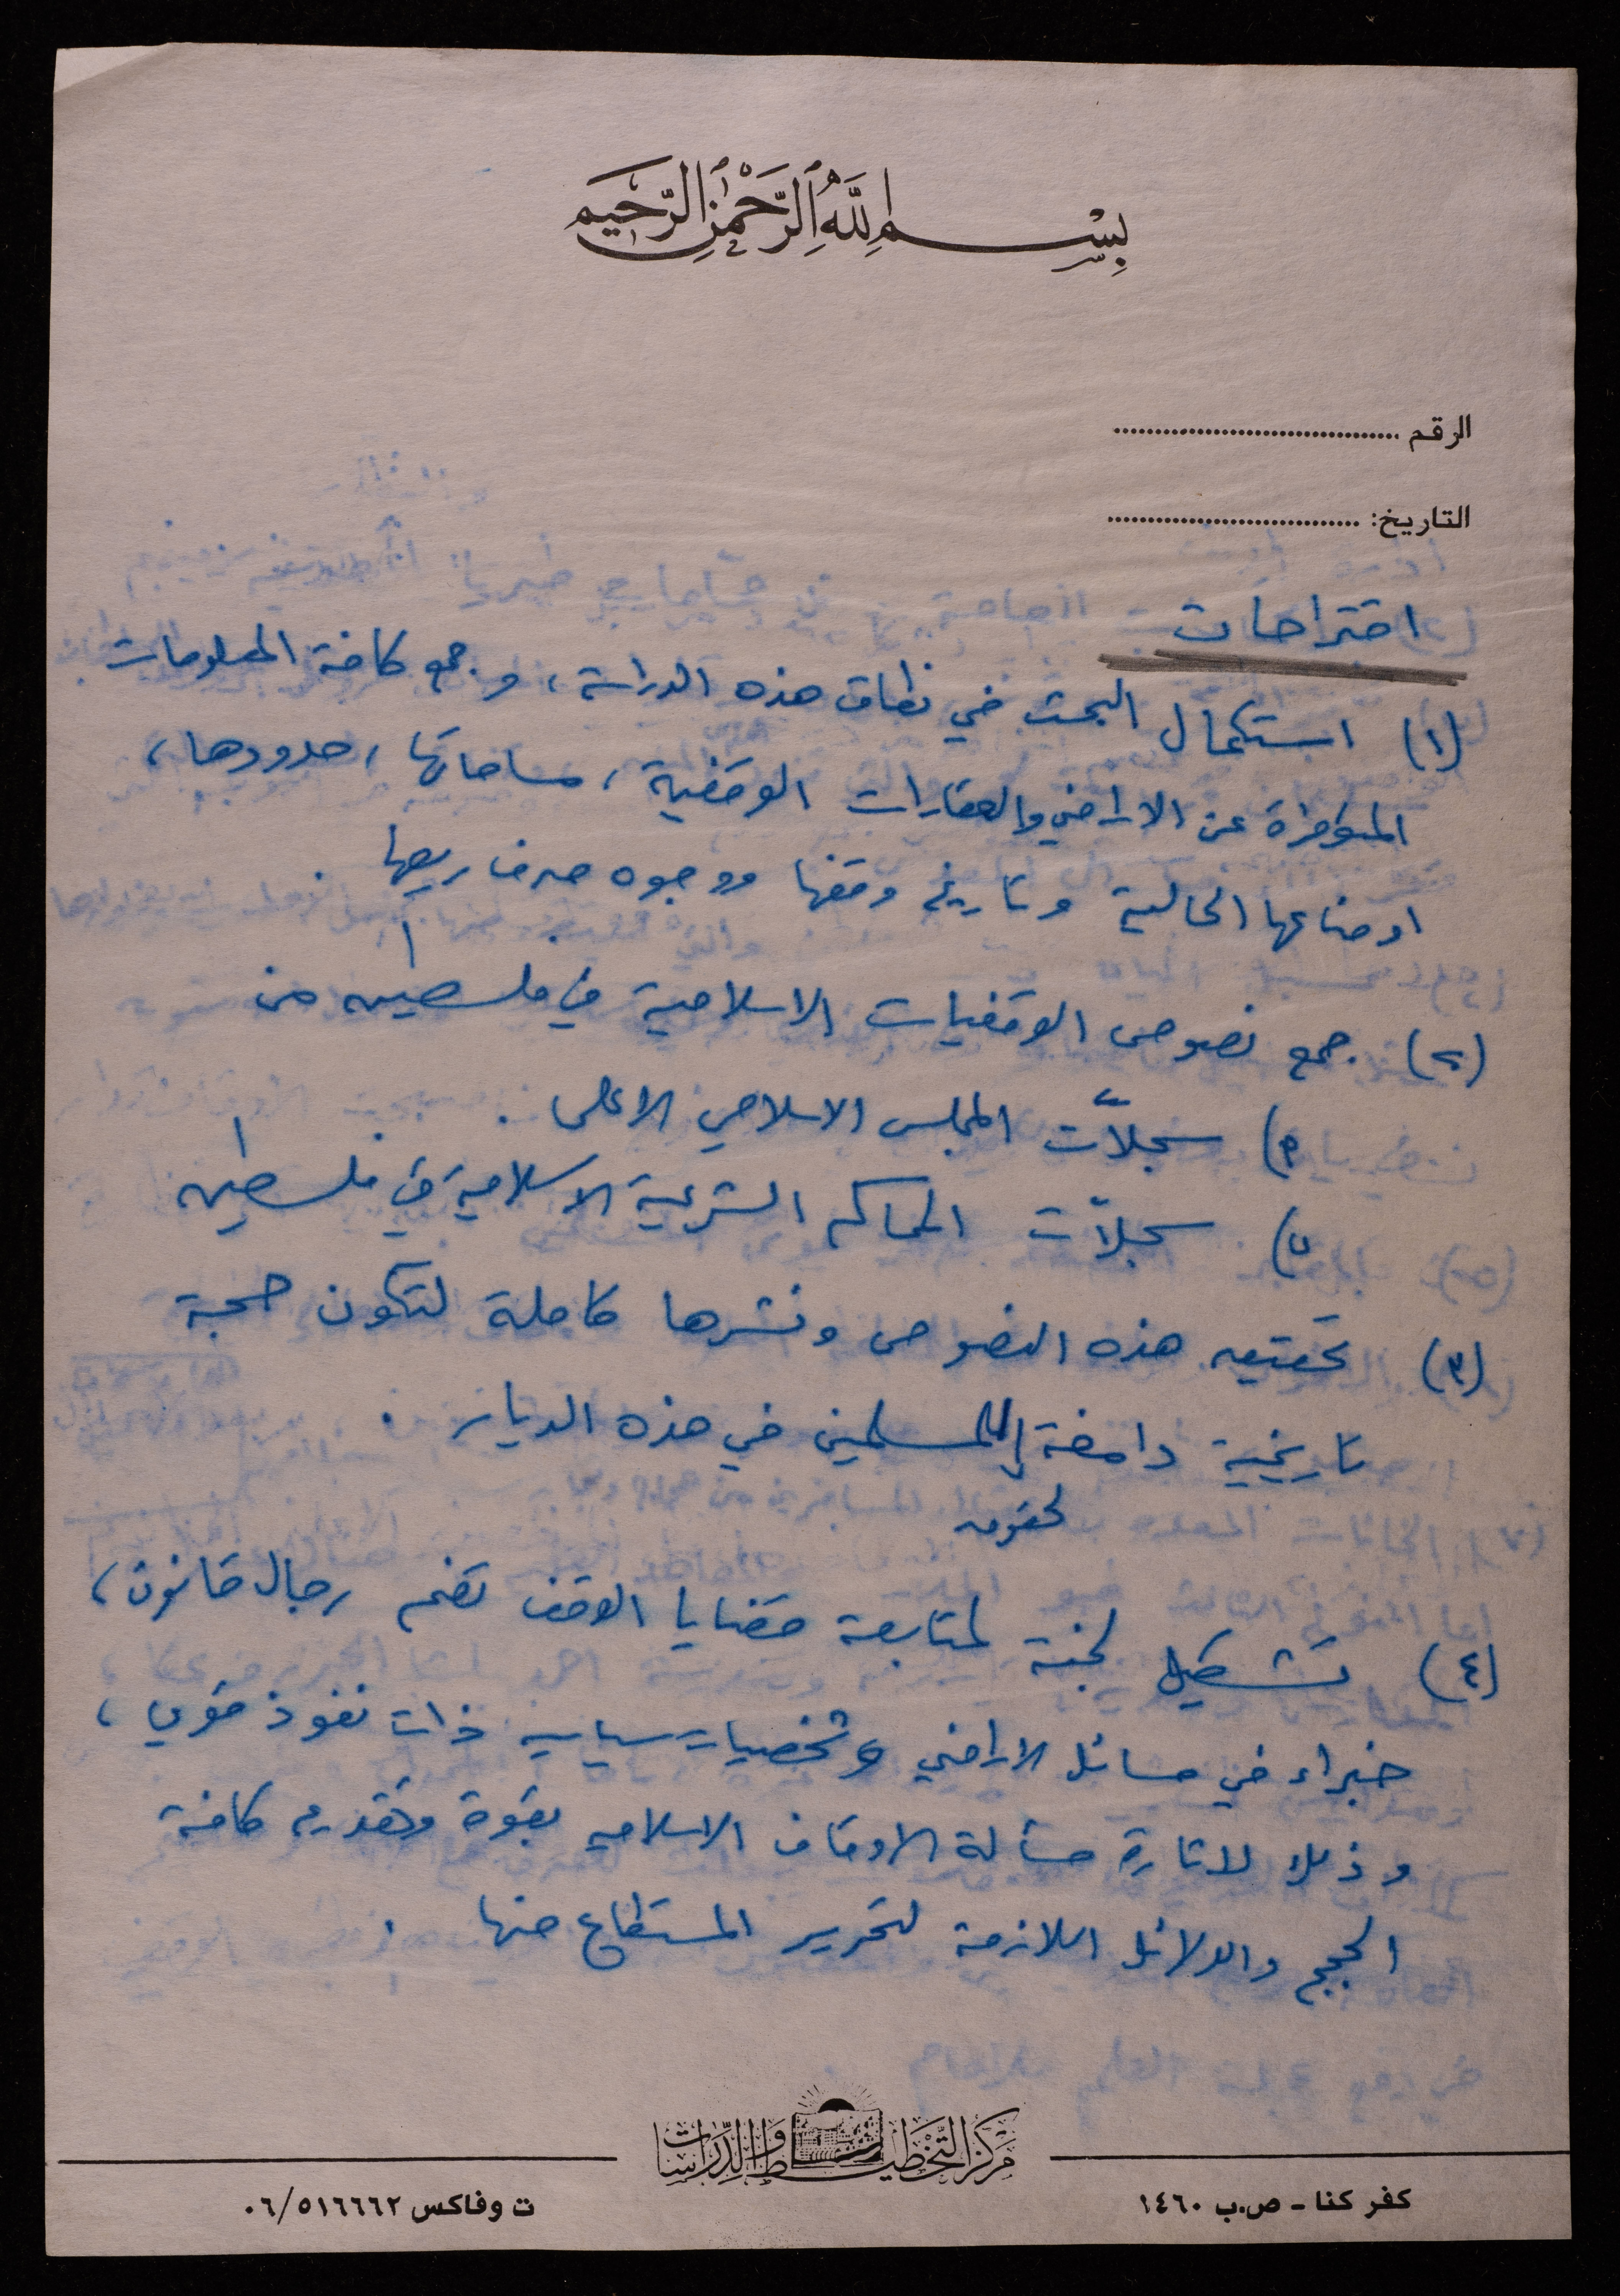 بِسْمِ اللَّهِ الرَّحْمَٰنِ الرَّحِيمِ
الرقم ....................................
التاريخ: ................................
اقتراحات
(١) استكمال البحث في نطاق هذه الدراسة، وجمع كافة المعلومات
المتوفرة عن الاراضي والعقارات الوقفية، مساحاتها، حدودها،
اوضاعها الحالية وتاريخ وقفها ووجوه صرف ريعها.
(٢) جمع نصوص الوقفيات الاسلامية في فلسطين من
أ) سجلّات المجلس الاسلامي الاعلى.
ب) سجلّات المحاكم الشرعية الاسلامية في فلسطين
(٣) تحقيق هذه النصوص ونشرها كاملة لتكون حجة
تاريخية دامغة للمسلمين في هذه الديار.
لحقوق
(٤) تشكيل لجنة لمتابعة قضايا الوقف تضم رجال قانون،
خبراء في مسائل الاراضي وشخصيات سياسيه ذات نفوذ قوي،
وذلك لاثارة مسألة الاوقاف الاسلاميه بقوة وتقديم كافة
الحجج والدلائل اللازمة لتحرير المستطاع منها.
مركز التخطيط والدراسات
كفر كنا - ص.ب ١٤٦٠
ت وفاكس ٠٦/٥١٦٦٦٢